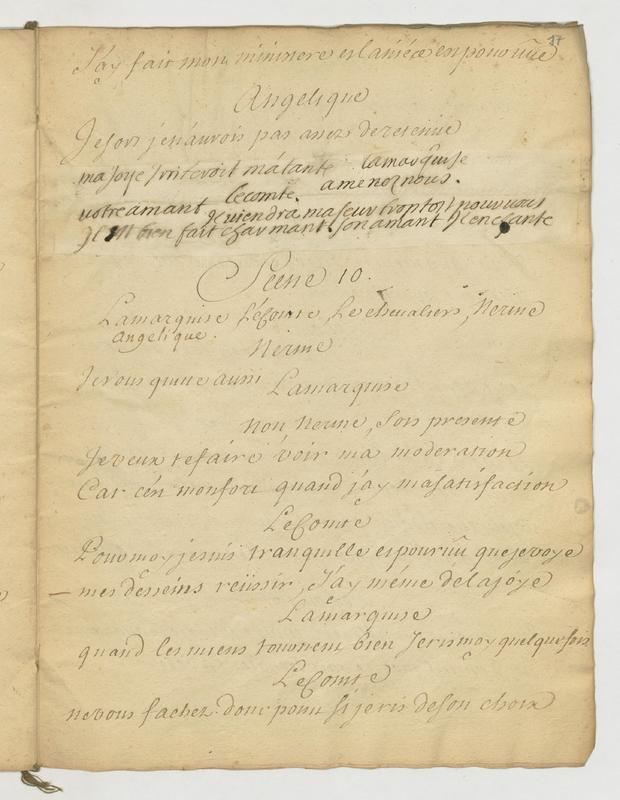 37
J'ay fait mon ministere et la niéce en pouruüe
Angelique
Je sors je n'aurois pas assez de retenüe
ma joye irriteroit ma tante la marquise
votre amant amenez nous.
lecomte.
Il viendra ma seur trop tost pour vous
Il est bien fait charmant. son amant l'enchante
Scene 10.
Lamarquise LeComte, Le chevaliers, Nerine
Angelique.
Nerine
Je vous quitte aussi
Lamarquise
non Nerine, sois presente
Je veux te faire voir ma moderation
Car c'en mon fort quand j'ay ma satisfaction
LeComte
Pour moy je suis tranquille et pouruü que je voye
mes desseins reüssir, J'ay méme de la joye
Lamarquise
quand les miens tournent bien Je ris moy quelque fois
LeComte
ne vous fachez donc point si je ris de son choix